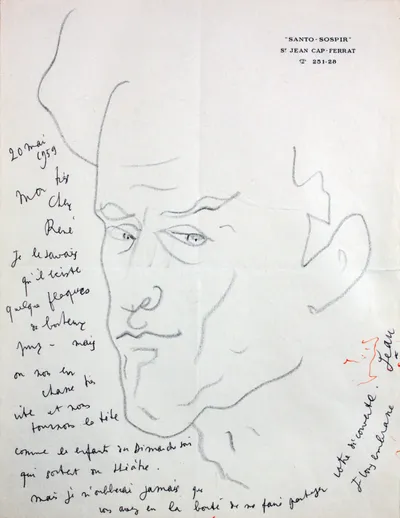 "SANTO-SOSPIR"
St JEAN CAP-FERRAT
251-28
20 mai
1959
Mon très
cher
René
Je le savais
qu'il existe
quelque flaques
de bonheur
pur - mais
on nous en
chasse très
vite et nous
tournons la tête
comme les enfants du Dimanche soir
qui sortent du théâtre.
Mais je n'oublierai jamais que
vous avez eu la bonté de me faire partager
votre découverte.
Je vous embrasse
Jean